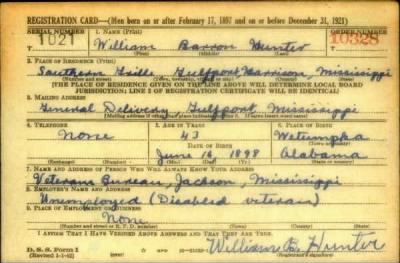 REGISTRATION CARD—(Men born on or after February 17, 1897 and on or before December 31, 1921)
SERIAL NUMBER 1. NAME (Print) ORDER NUMBER
T 1021 William Barron Hunter T 10328
(First) (Middle) (Last)
2. PLACE OF RESIDENCE (Print)
Southern Gulfport Harrison, Mississippi
(THE PLACE OF RESIDENCE GIVEN ON THE LINE ABOVE WILL DETERMINE LOCAL BOARD
JURISDICTION; LINE 2 OF REGISTRATION CERTIFICATE WILL BE IDENTICAL)
3. MAILING ADDRESS
General Delivery Gulfport Mississippi
4. TELEPHONE 5. AGE IN YEARS 6. PLACE OF BIRTH
None 43 Wetumpka
DATE OF BIRTH
June 16 1898 Alabama
(Exchange) (Number) (Mo.) (Day) (Yr.) (State or country)
7. NAME AND ADDRESS OF PERSON WHO WILL ALWAYS KNOW YOUR ADDRESS
Veterans Bureau, Jackson, Mississippi
8. EMPLOYER'S NAME AND ADDRESS
Unemployed (Disabled veteran)
9. PLACE OF EMPLOYMENT OR BUSINESS
None
I AFFIRM THAT I HAVE VERIFIED ABOVE ANSWERS AND THAT THEY ARE TRUE.
D. S. S. Form 1
(Revised 1-1-42)
William B. Hunter
(Registrant's signature)